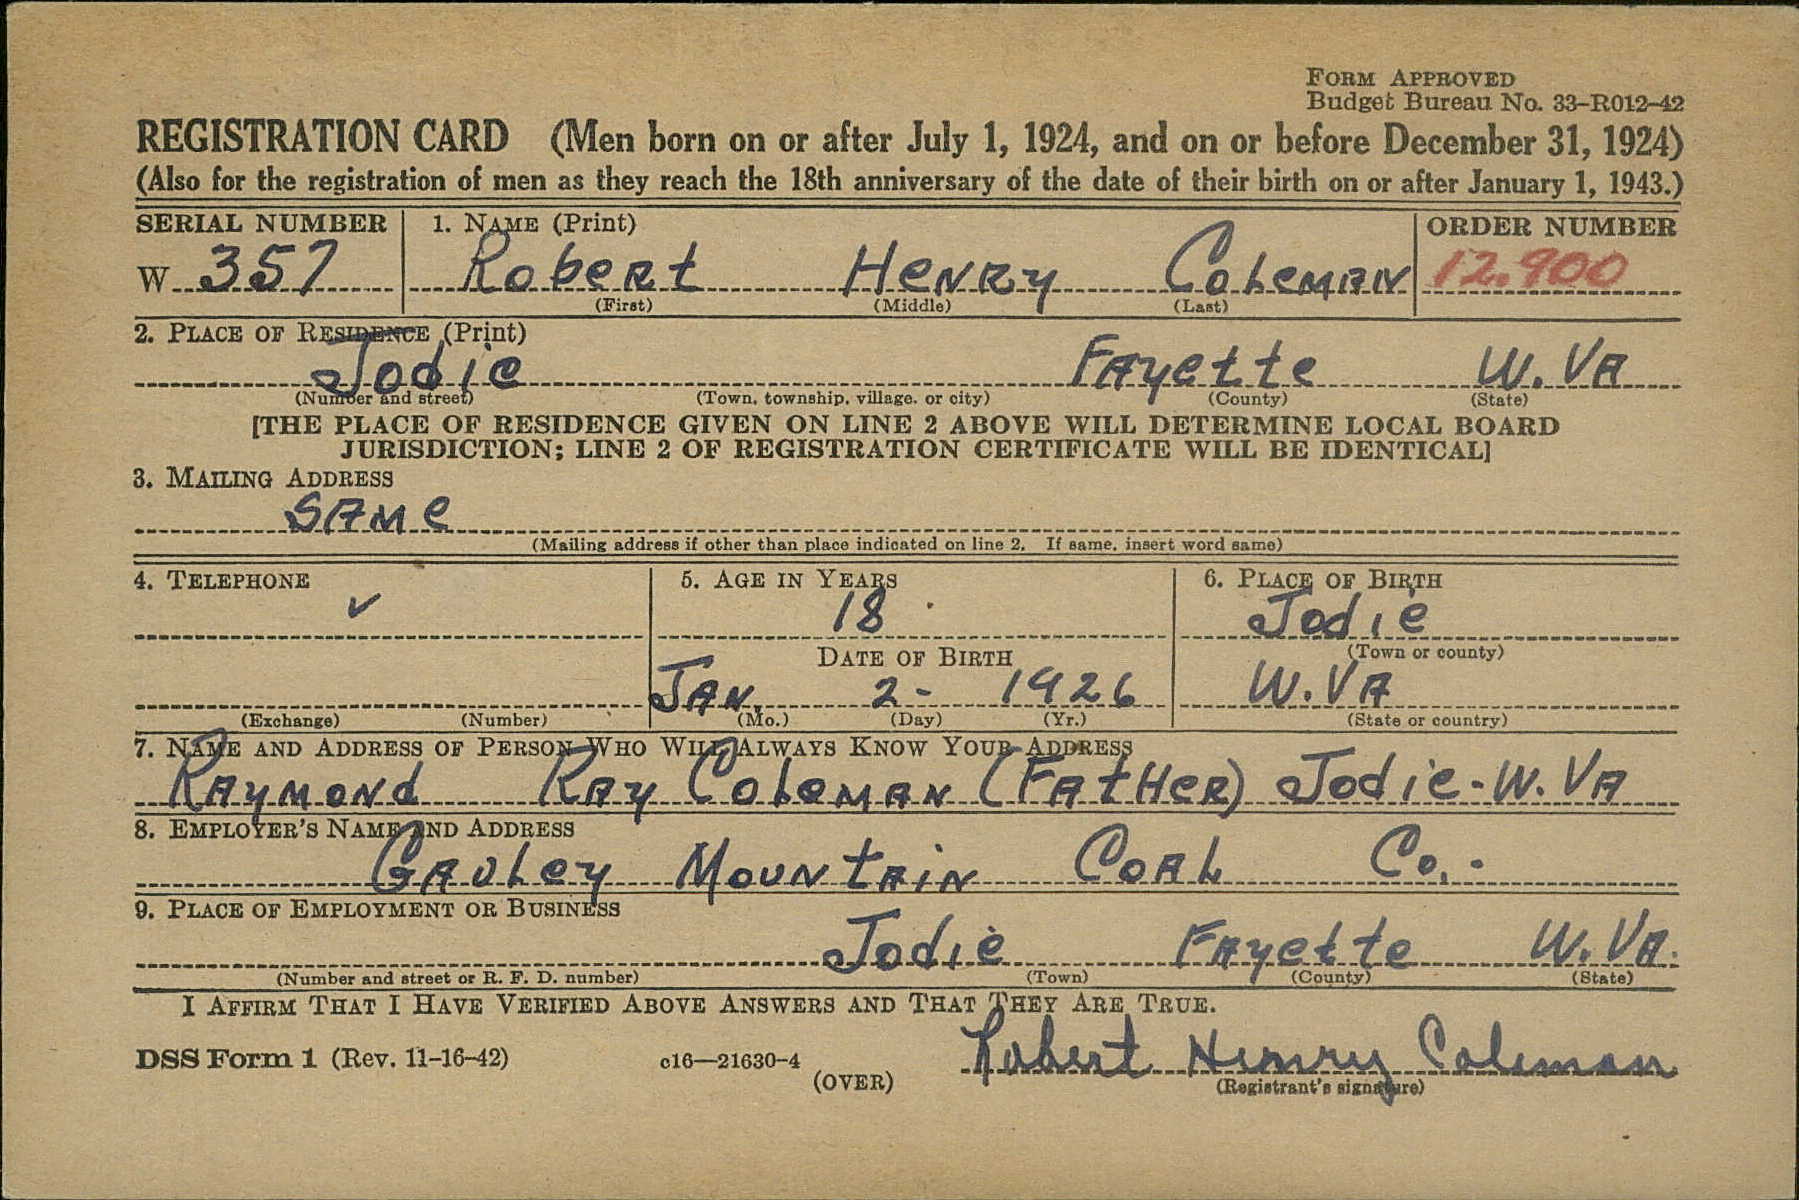 FORM APPROVED
Budget Bureau No. 33-R012-42
REGISTRATION CARD (Men born on or after July 1, 1924, and on or before December 31, 1924)
(Also for the registration of men as they reach the 18th anniversary of the date of their birth on or after January 1, 1943.)
SERIAL NUMBER 1. NAME (Print) ORDER NUMBER
W 357 Robert Henry Coleman 12.900
(First) (Middle) (Last)
2. PLACE OF RESIDENCE (Print)
Jodie Fayette W. VA
(Number and street) (Town, township, village, or city) (County) (State)
[THE PLACE OF RESIDENCE GIVEN ON LINE 2 ABOVE WILL DETERMINE LOCAL BOARD
JURISDICTION; LINE 2 OF REGISTRATION CERTIFICATE WILL BE IDENTICAL]
3. MAILING ADDRESS
SAME
(Mailing address if other than place indicated on line 2. If same, insert word same)
4. TELEPHONE 5. AGE IN YEARS 6. PLACE OF BIRTH
✓ 18 Jodie
DATE OF BIRTH (Town or county)
JAN. 2- 1926 W. VA
(Exchange) (Number) (Mo.) (Day) (Yr.) (State or country)
7. NAME AND ADDRESS OF PERSON WHO WILL ALWAYS KNOW YOUR ADDRESS
Raymond Ray Coleman (Father) Jodie-W. VA
8. EMPLOYER'S NAME AND ADDRESS
Gauley Mountain Coal Co.-
9. PLACE OF EMPLOYMENT OR BUSINESS
Jodie Fayette W. VA.
(Number and street or R. F. D. number) (Town) (County) (State)
I AFFIRM THAT I HAVE VERIFIED ABOVE ANSWERS AND THAT THEY ARE TRUE.
DSS Form 1 (Rev. 11-16-42) c16—21630-4 Robert Henry Coleman
(OVER) (Registrant's signature)